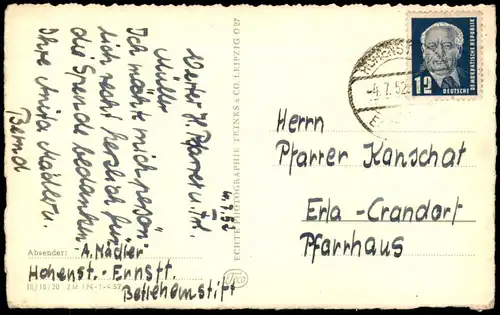 4.7.52
Werter H. Pfarrer u. Frl.
Müller
Ich möchte mich persön-
lich recht herzlich für
die Spende bedanken.
Ihre Anita Mädler u.
Bernd
Abwender:
A. Mädler
Hohenst.-Ernstt.
Betlehemstift
(II/18) 20 Z M 194-1-4.52
ECHTE PHOTOGRAPHIE TRINKS & CO. LEIPZIG O 27.
Trco
-4.7.52
12
DEUTSCHE
DEMOKRATISCHE REPUBLIK
Herrn
Pfarrer Kanschat
Erla-Crandorf
Pfarrhaus